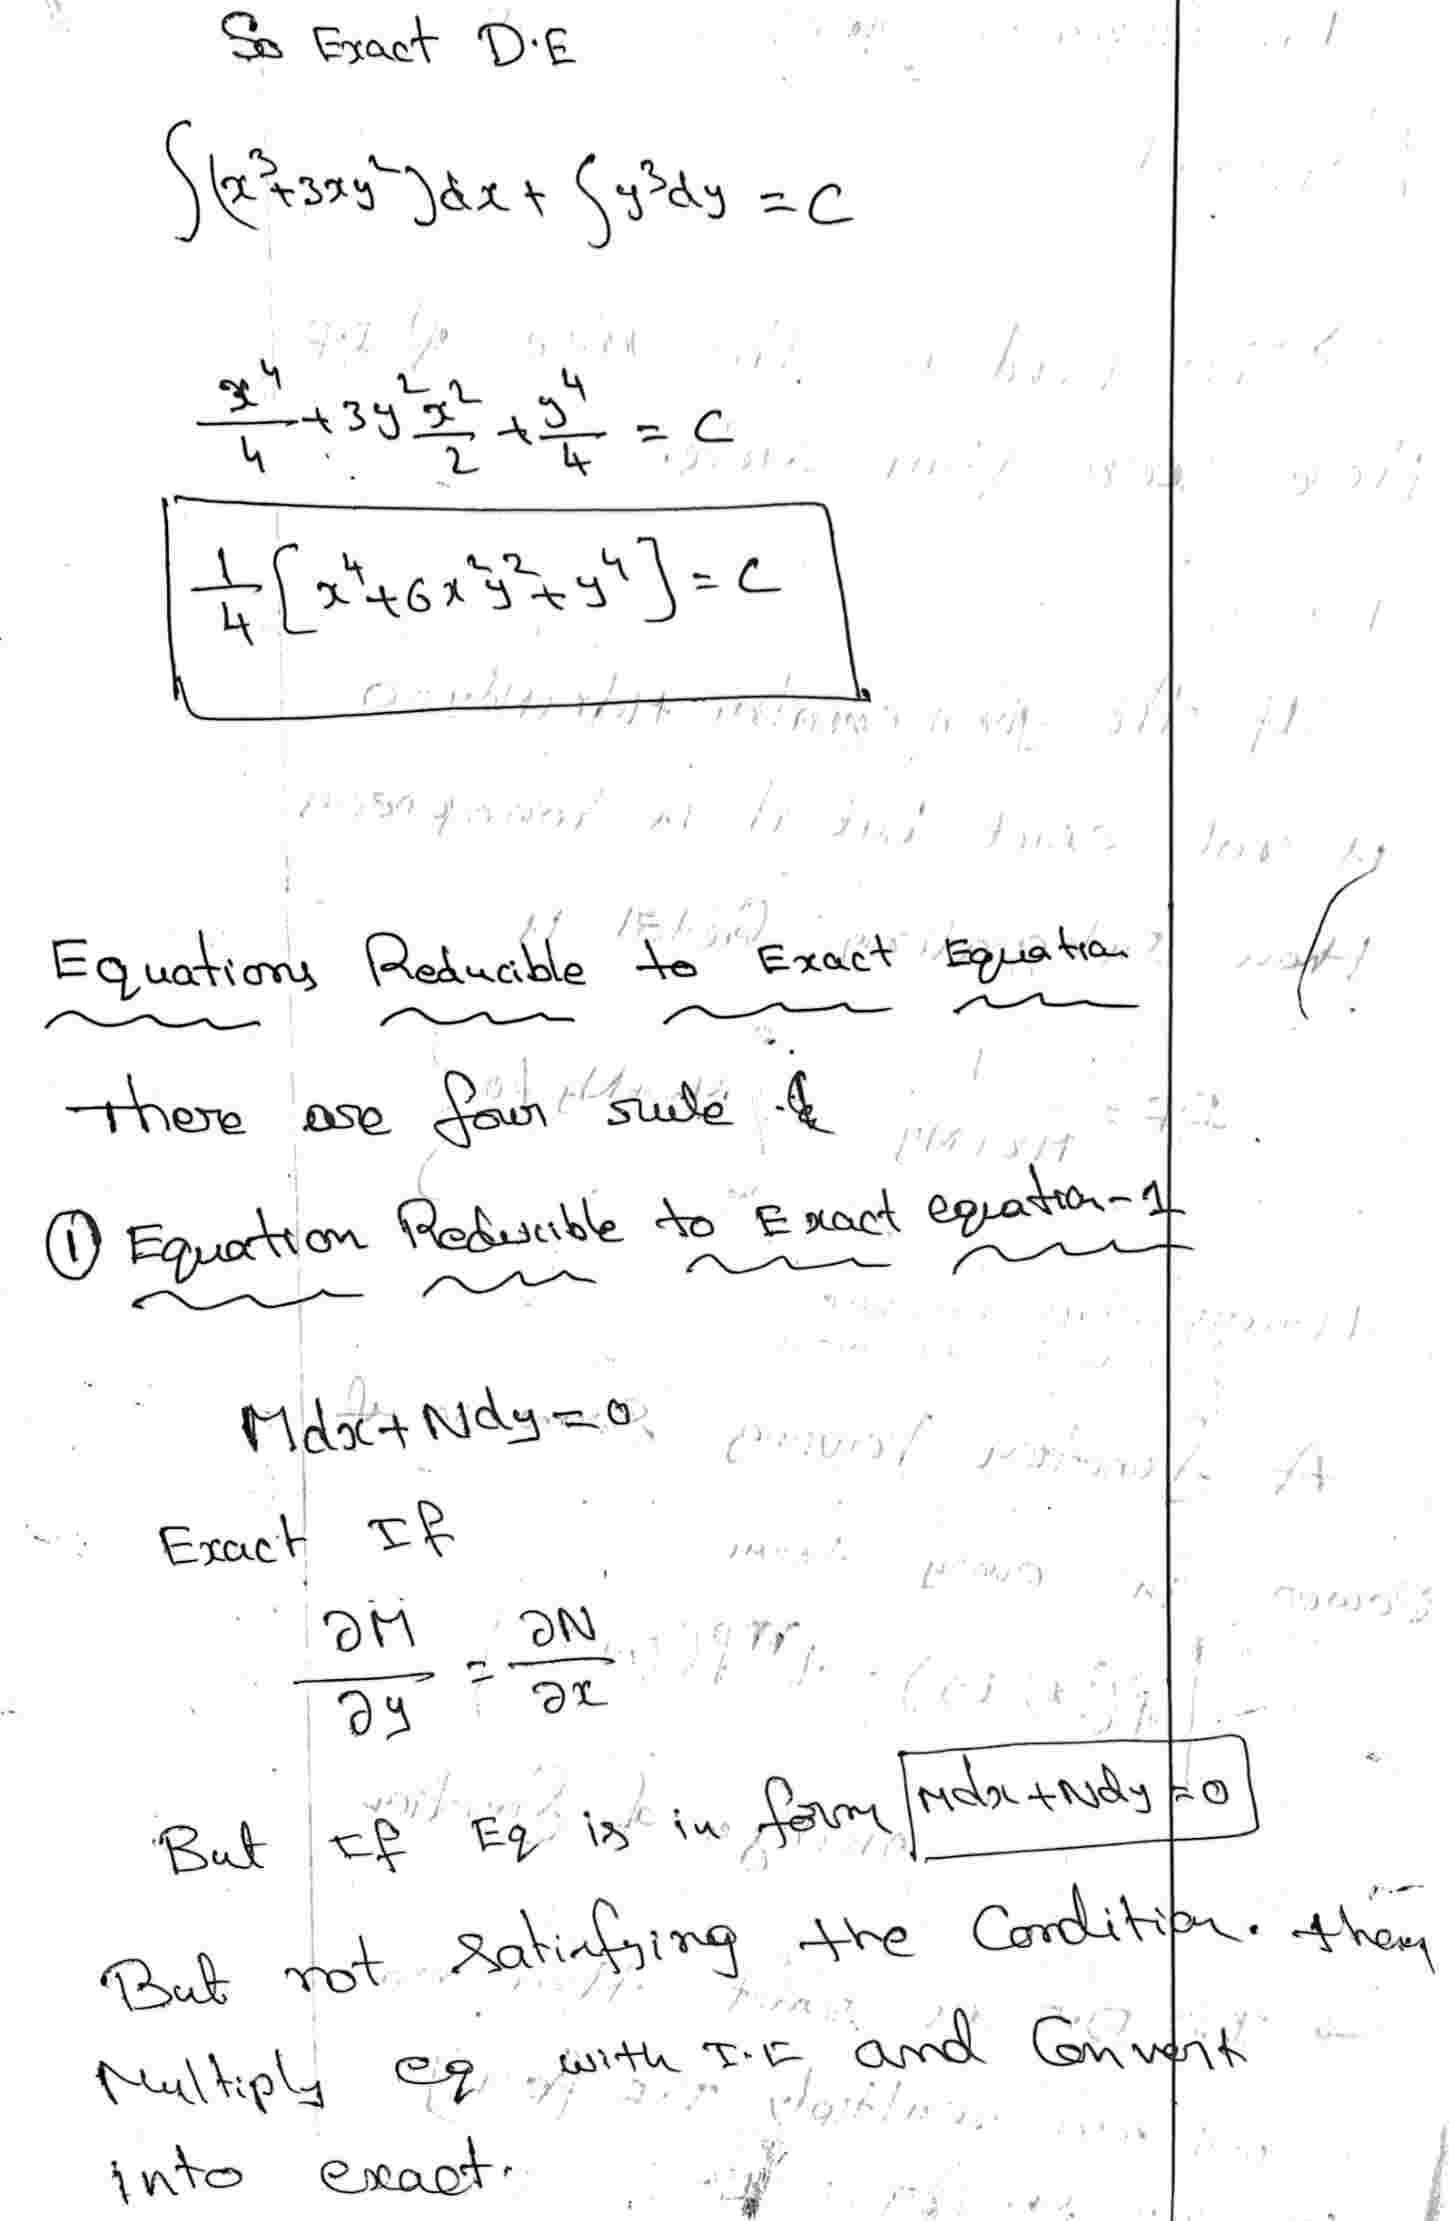 So Exact D.E
∫(x³+3xy²)dx + ∫y³dy = C
x⁴/4 + 3y² x²/2 + y⁴/4 = C
1/4 [x⁴+6x²y²+y⁴] = C
Equations Reducible to Exact Equation
There are four rule
① Equation Reducible to Exact equation-1
Mdx+Ndy=0
Exact If
∂M/∂y = ∂N/∂x
But If Eq is in form Mdx+Ndy=0
But not satisfying the Condition. then
Multiply eq with I.F and Convert
into exact.